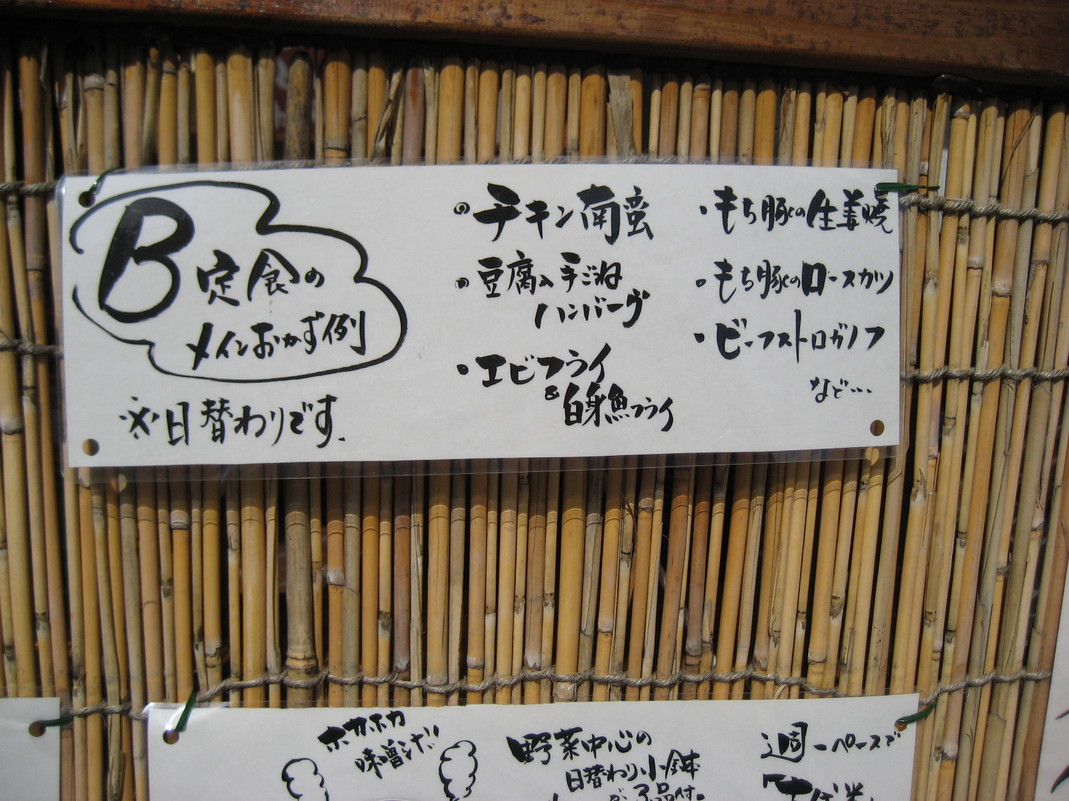 B定食の
メインおかず例
※日替わりです.
・チキン南蛮
・豆腐入手ごね
ハンバーグ
・エビフライ
&白身魚フライ
・もち豚の生姜焼
・もち豚のロースカツ
・ビーフストロガノフ
など…
ホカホカ
味噌汁だ!!
野菜中心の
日替わり小鉢
が3品付。
週一ペースで